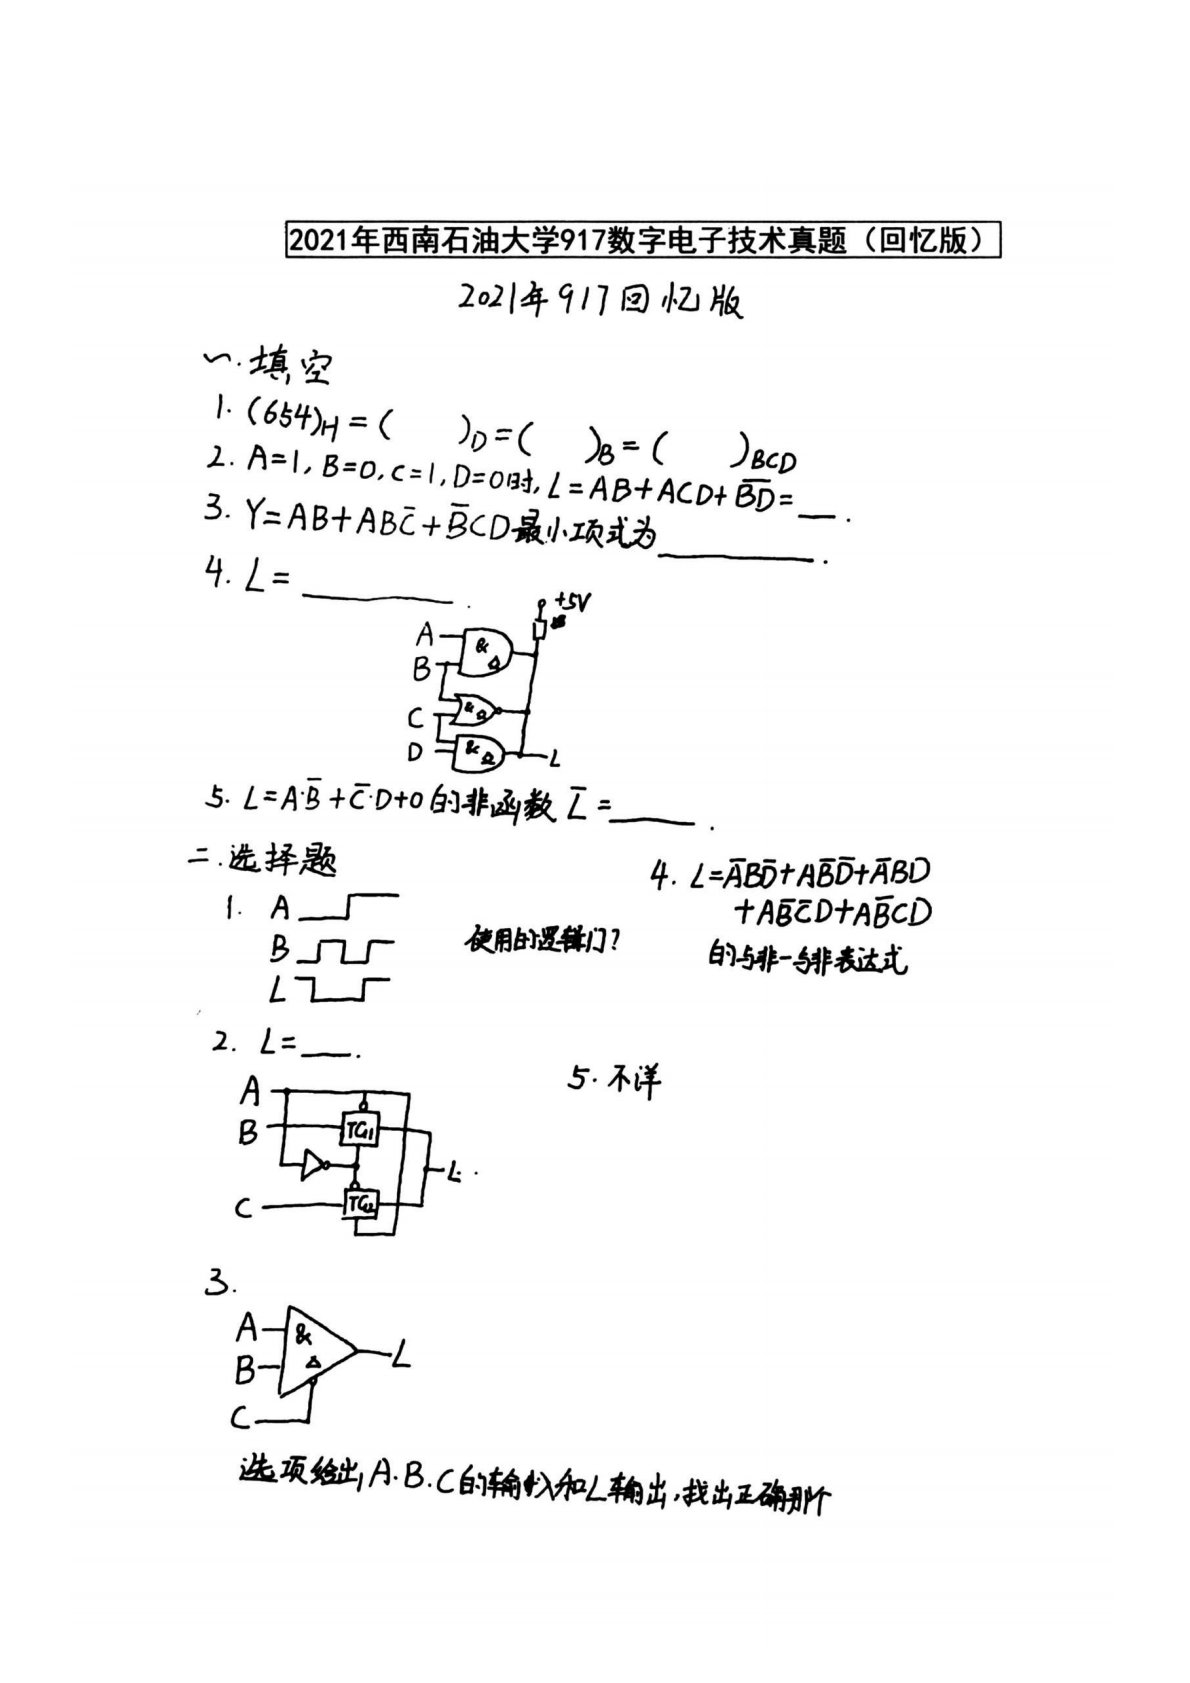 2021年西南石油大学917数字电子技术真题（回忆版）
2021年917回忆版
一.填空
1. (654)H = (    )D = (    )B = (    )BCD
2. A=1, B=0, C=1, D=0时, L=AB+ACD+B̅D̅=__.
3. Y=AB+ABC̅+B̅CD最小项式为________.
4. L=________.
+5V
A
&
B
C
&
D
&
L
5. L=A·B̅+C̅·D+0的非函数 L̅=____.
二.选择题
1. A
B
L
使用的逻辑门?
2. L=__.
A
B
TG1
L.
C
TG2
3.
A
&
B
L
C
选项给出A.B.C的输入和L输出,找出正确那个
4. L=A̅BD̅+AB̅D̅+A̅BD
+AB̅C̅D+AB̅CD
的与非-与非表达式
5. 不详